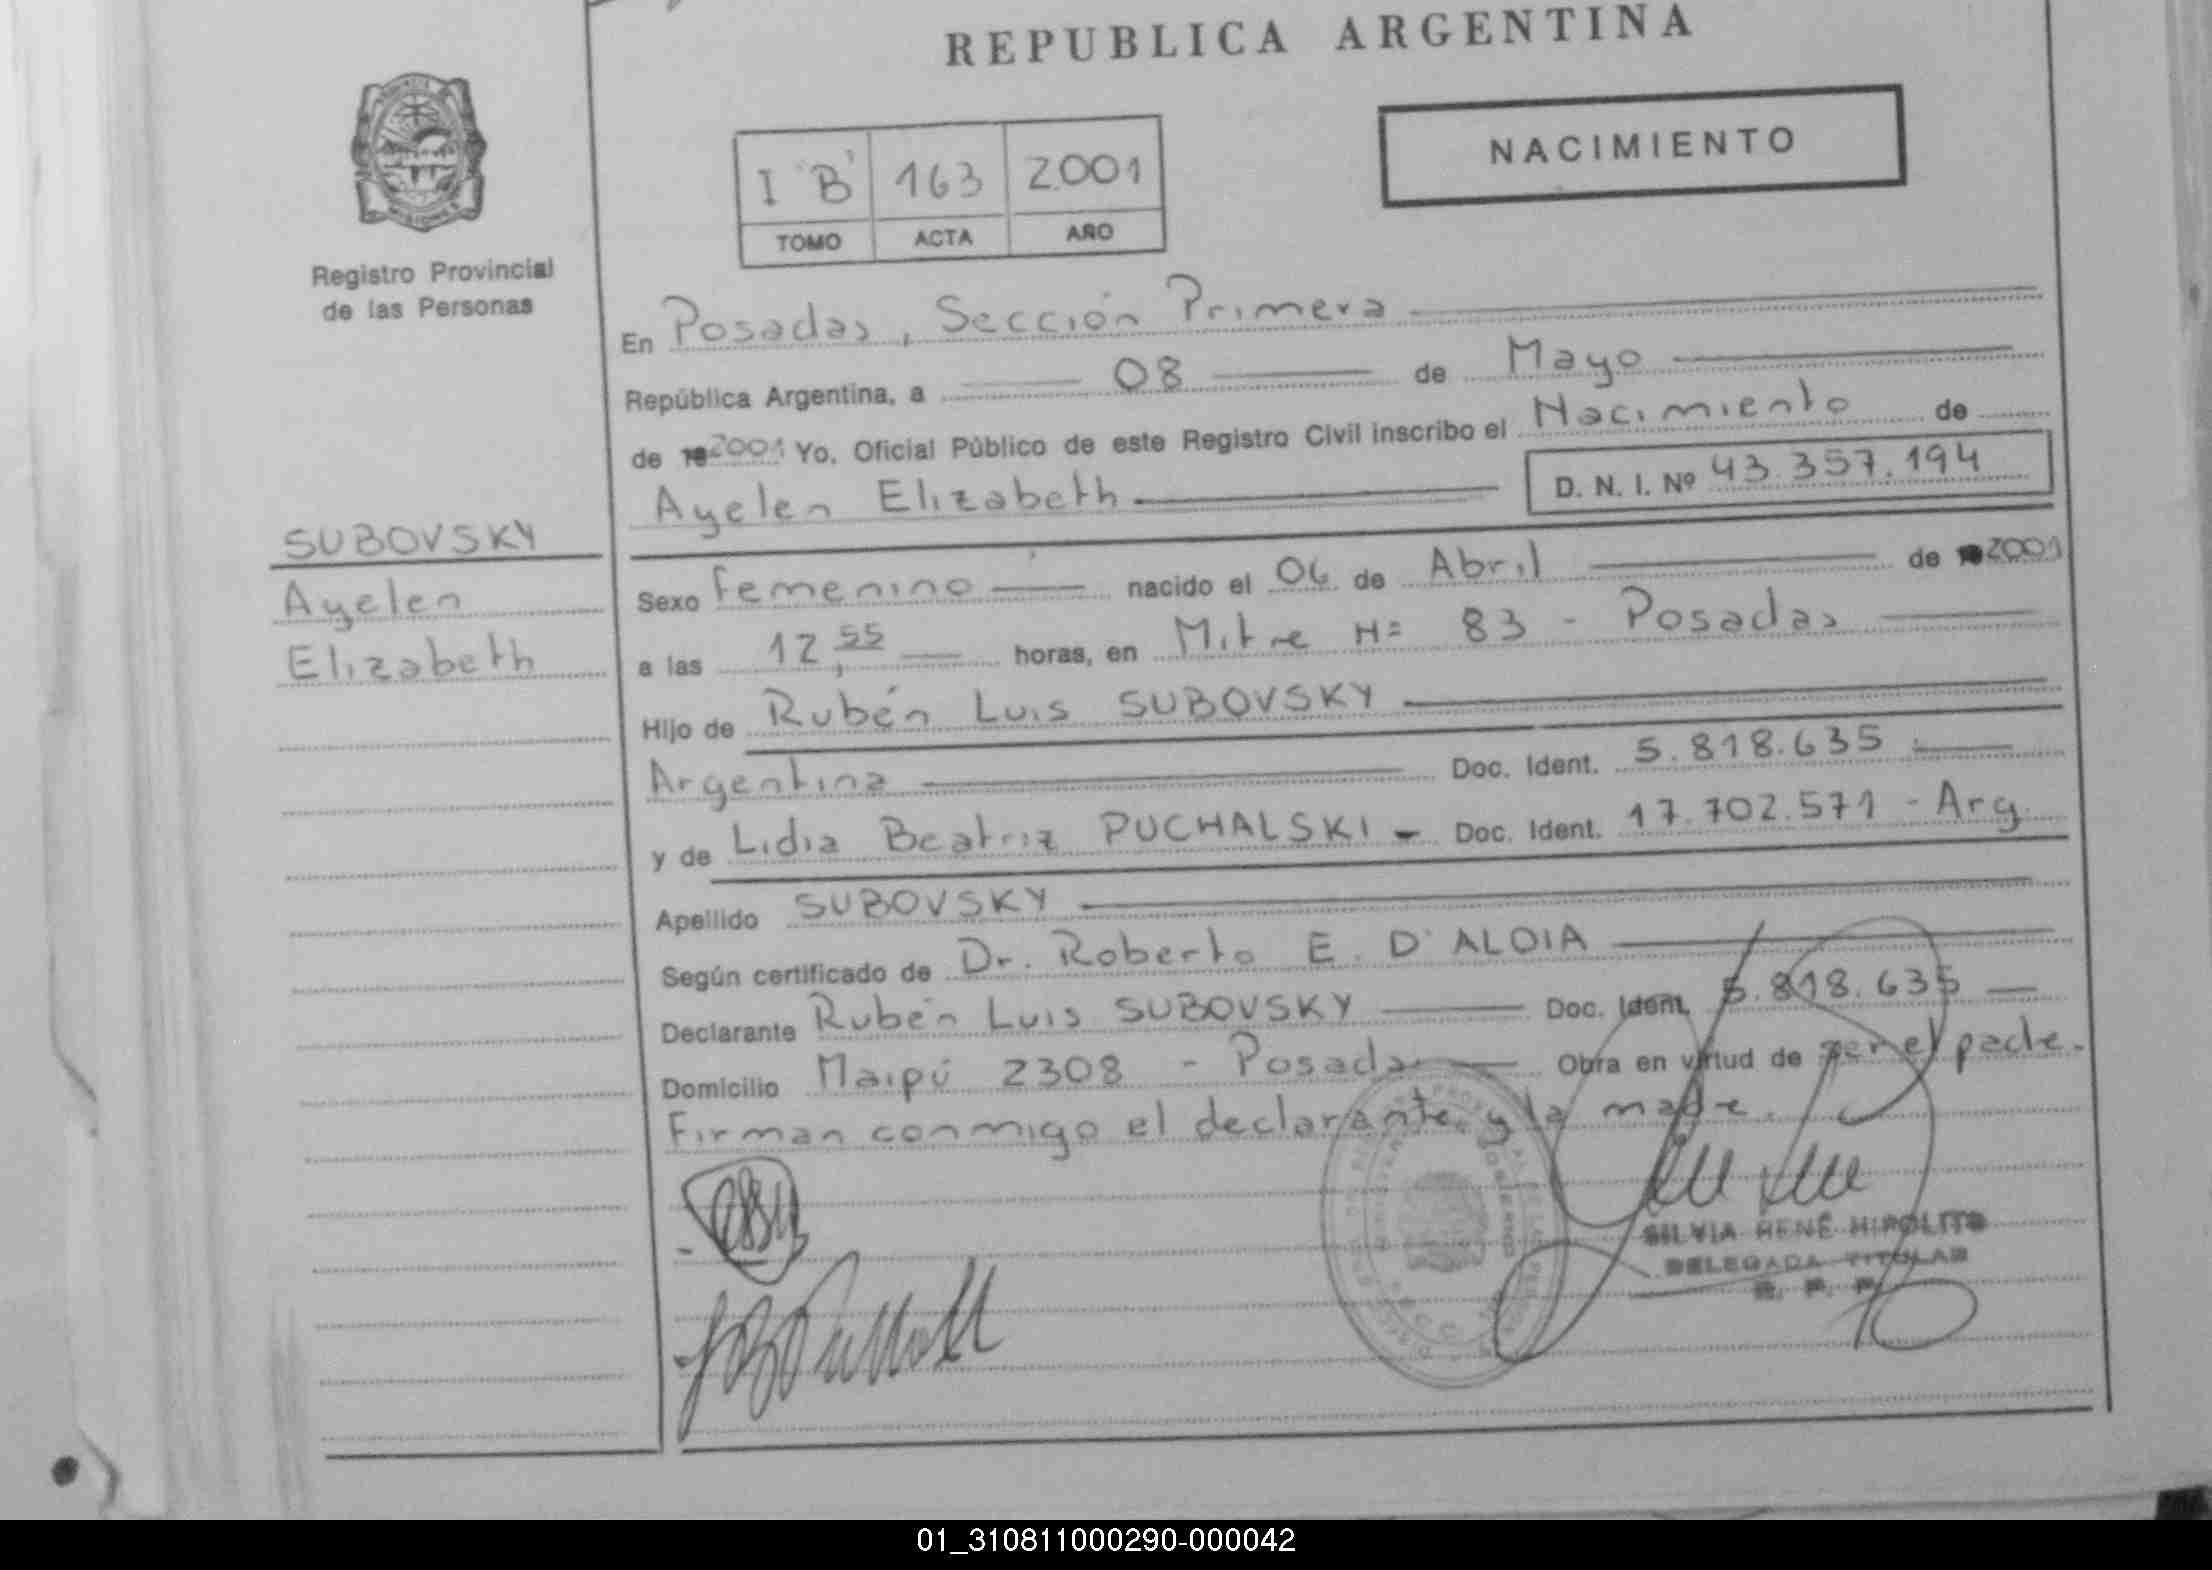 REPUBLICA ARGENTINA
NACIMIENTO
I "B" 163 2001
TOMO ACTA AÑO
Registro Provincial
de las Personas
En Posadas, Sección Primera
República Argentina, a 08 de Mayo
de 19 2001 Yo, Oficial Público de este Registro Civil inscribo el Nacimiento de
Ayelen Elizabeth D. N. I. Nº 43.357.194
SUBOVSKY
Ayelen
Elizabeth
Sexo Femenino nacido el 06 de Abril de 2001
a las 12,55 horas, en Mitre N= 83 - Posadas
Hijo de Rubén Luis SUBOVSKY
Argentina Doc. Ident. 5.818.635
y de Lidia Beatriz PUCHALSKI - Doc. Ident. 17.702.571 - Arg.
Apellido SUBOVSKY
Según certificado de Dr. Roberto E. D'ALOIA
Declarante Rubén Luis SUBOVSKY Doc. Ident. 5.818.635
Domicilio Maipú 2308 - Posadas Obra en virtud de ser el padre.
Firman conmigo el declarante y la madre.
SILVIA RENÉ HIPOLITO
DELEGADA TITULAR
R. P. P.
01_310811000290-000042